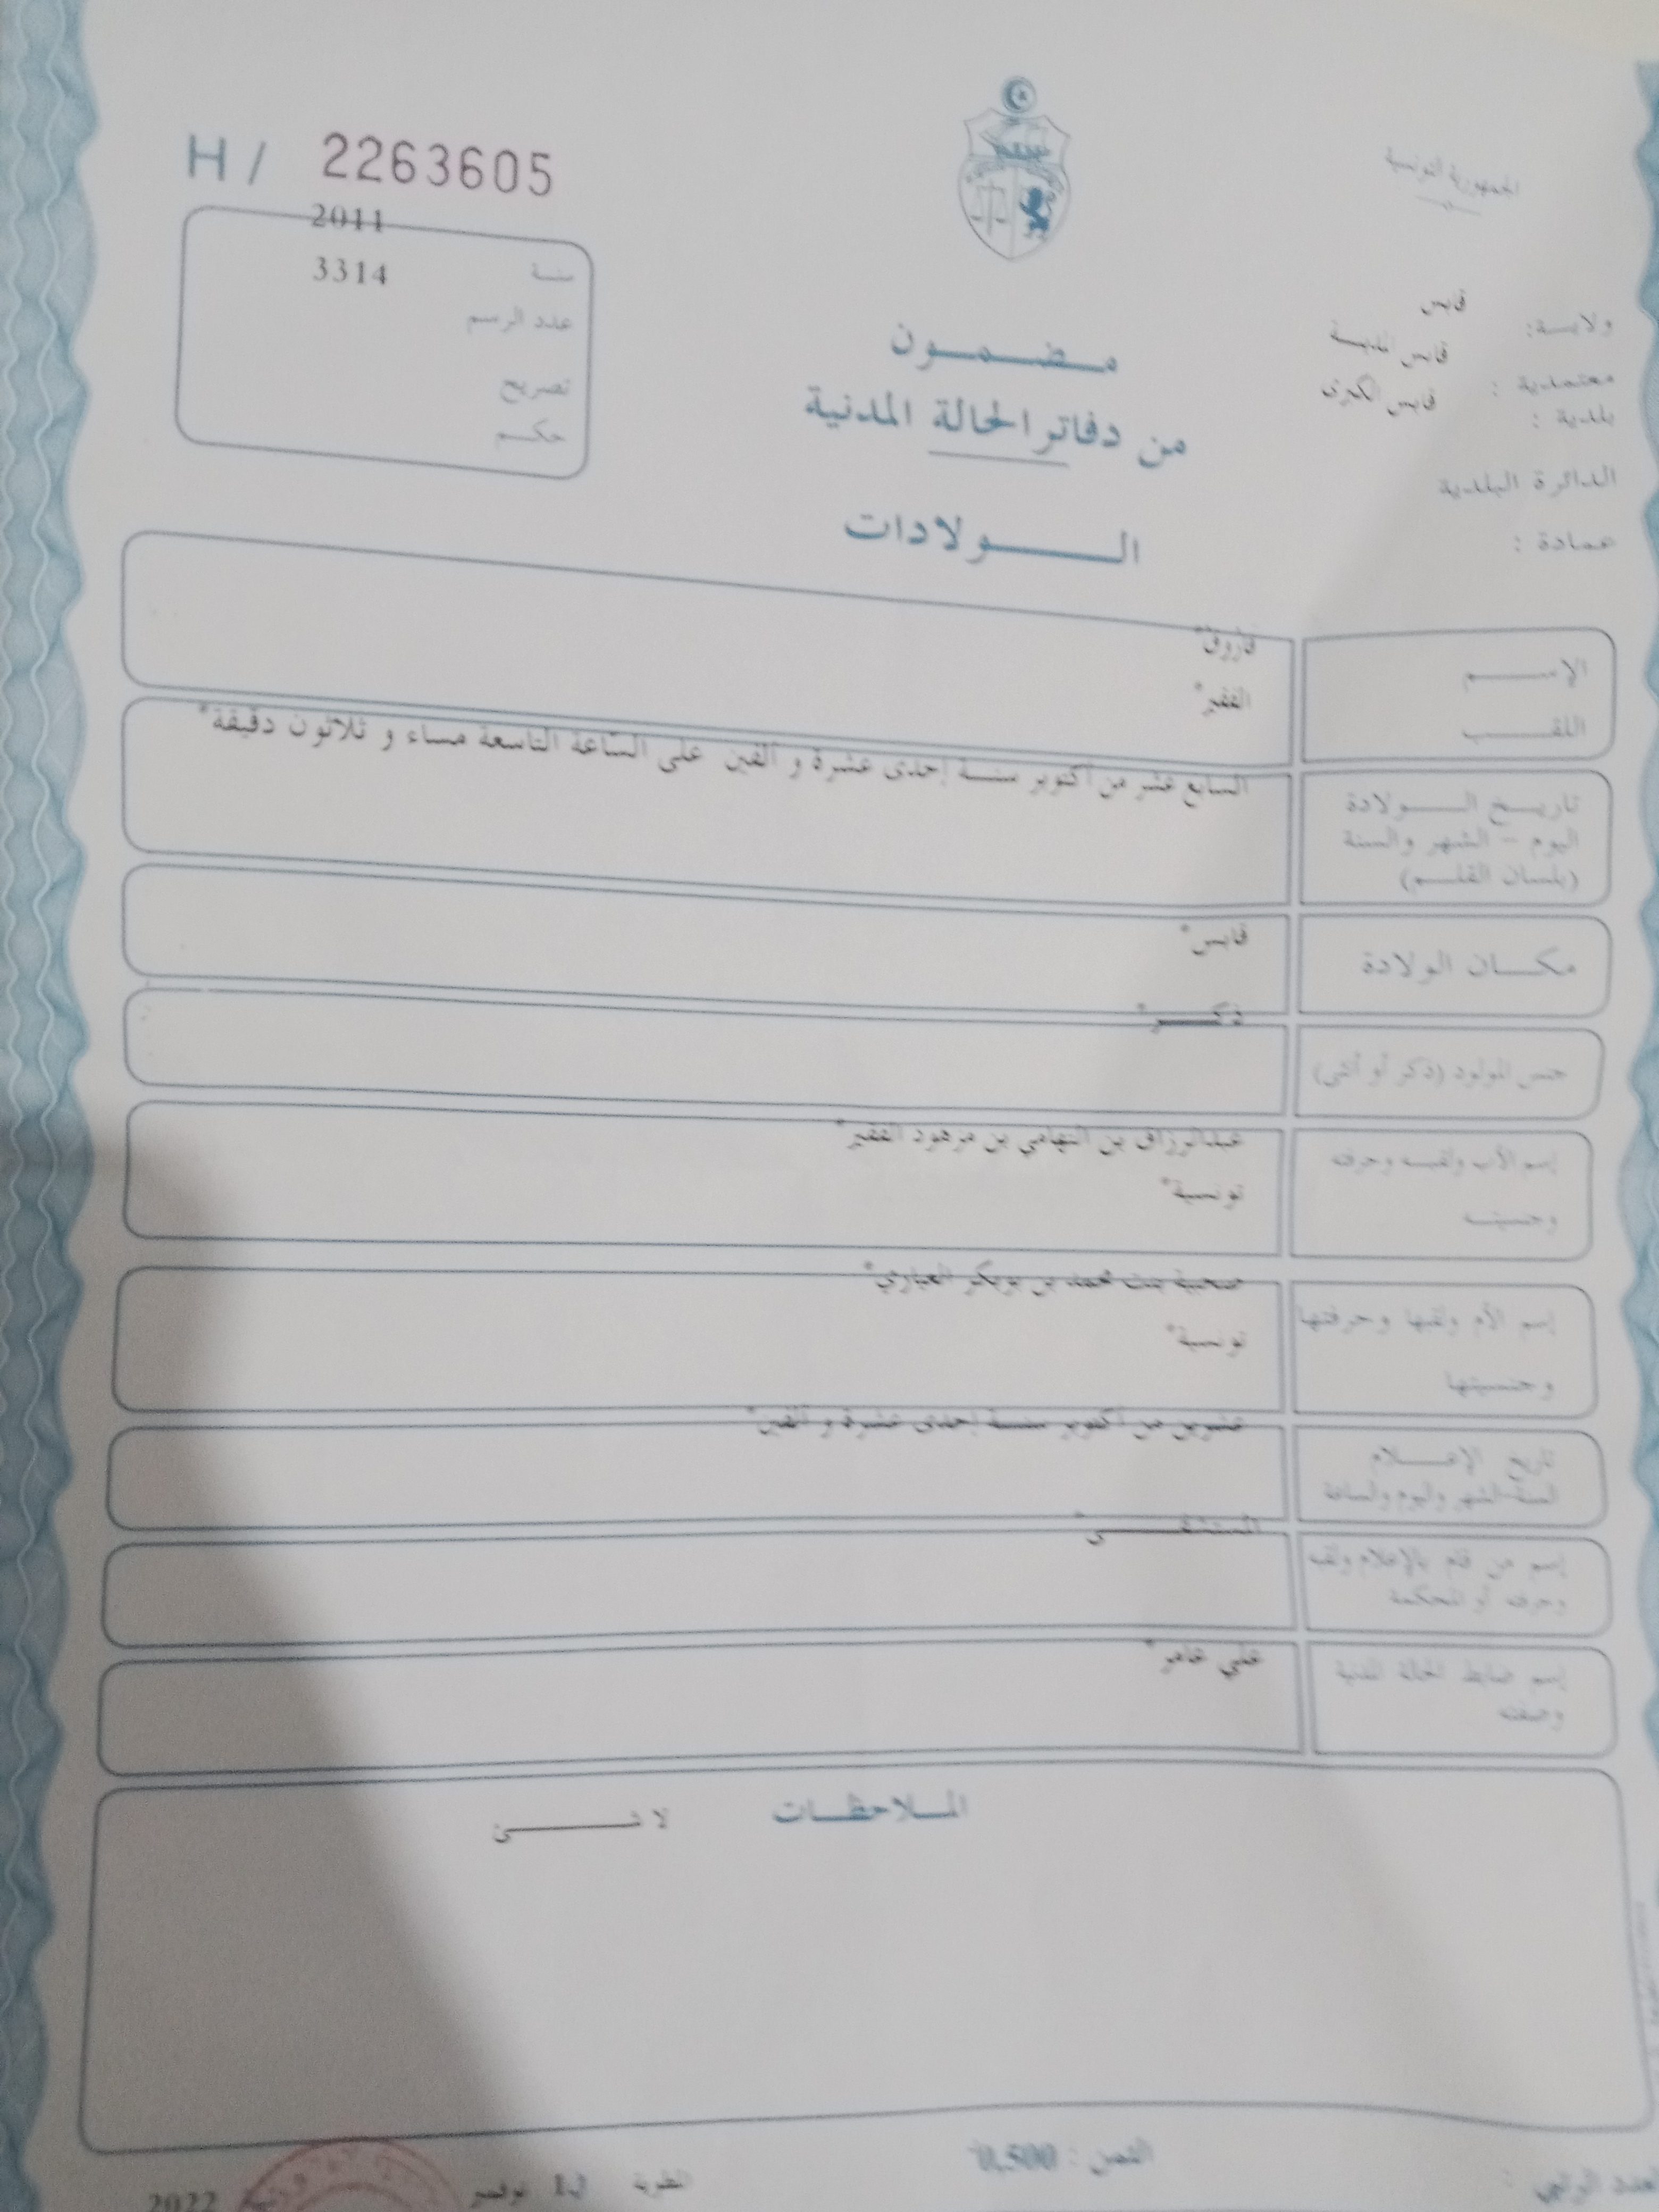 الجمهورية التونسية
H / 2263605
ولايـة: قابس
معتمدية : قابس المدينـة
بلدية : قابس الكبرى
الدائرة البلدية
عمادة :
2011
سنـة
3314
عدد الرسم
تصريح
حكـم
مـضـمـون
من دفاتر الحالة المدنية
الـولادات
الإسـم
فاروق*
اللقـب
الفقير*
تاريـخ الـولادة
اليوم - الشهر والسنة
(بلسان القلـم)
السابع عشر من أكتوبر سنـة إحدى عشرة و ألفين على السّاعة التاسعة مساء و ثلاثون دقيقة*
مكـان الولادة
قابس*
جنس المولود (ذكر أو أنثى)
ذكـر*
إسم الأب ولقبـه وحرفته
وجنسيتـه
عبدالرزاق بن التهامي بن مزهود الفقير*
تونسية*
إسم الأم ولقبها وحرفتها
وجنسيتها
بنت محمد بن بوبكر العياري*
تونسية*
تاريخ الإعـلام
السنة-الشهر واليوم والساعة
عشرين من أكتوبر سنـة إحدى عشرة و ألفين*
إسم من قام بالإعلام ولقبه
وحرفته أو المحكمة
المستشفـى*
إسم ضابط الحالة المدنية
وصفته
علي عامر*
المـلاحظـات
لا شـئ
الثمن : 0,500
العدد الرتبي :
نوفمبر 2022